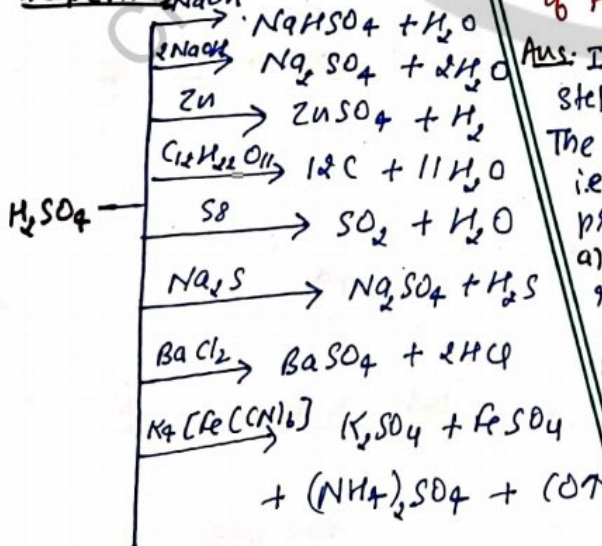 NaOH → NaHSO4 + H2O
2NaOH → Na2SO4 + 2H2O
Zn → ZnSO4 + H2
C12H22O11 → 12C + 11H2O
H2SO4
S8 → SO2 + H2O
Na2S → Na2SO4 + H2S
BaCl2 → BaSO4 + 2HCl
K4[Fe(CN)6] → K2SO4 + FeSO4
+ (NH4)2SO4 + CO↑
Ans: I
Ste
The
i.e
a)